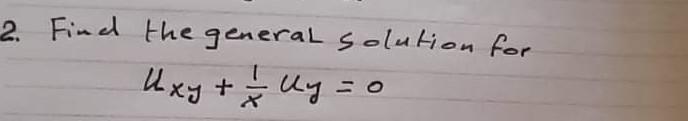 2. Find the general solution for
Uxy + 1/x Uy = 0